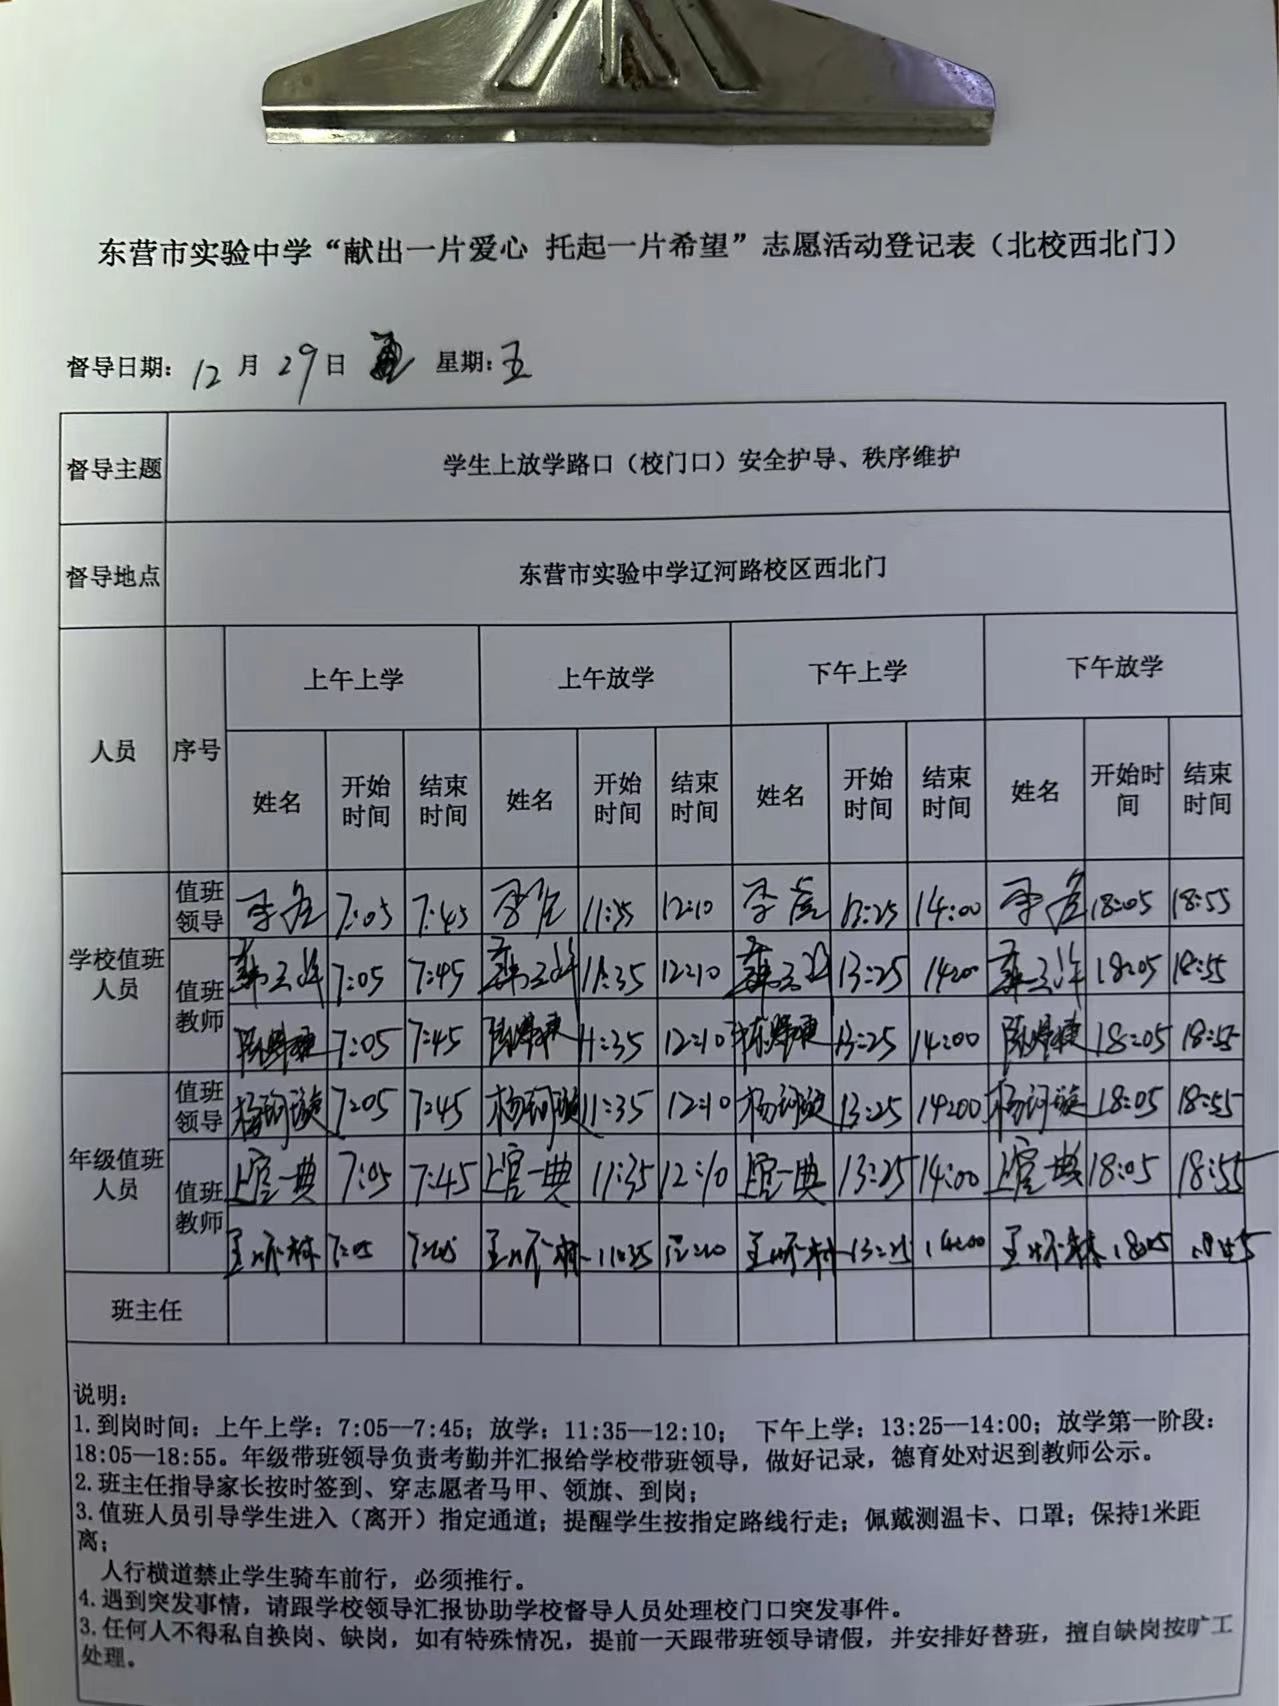 东营市实验中学“献出一片爱心 托起一片希望”志愿活动登记表（北校西北门）
督导日期：12月29日 星期：五
督导主题 学生上放学路口（校门口）安全护导、秩序维护
督导地点 东营市实验中学辽河路校区西北门
人员 序号 上午上学 上午放学 下午上学 下午放学
姓名 开始时间 结束时间 姓名 开始时间 结束时间 姓名 开始时间 结束时间 姓名 开始时间 结束时间
学校值班人员
值班领导 7:05 7:45 11:35 12:10 13:25 14:00 18:05 18:55
值班教师 7:05 7:45 11:35 12:10 13:25 14:00 18:05 18:55
7:05 7:45 11:35 12:10 13:25 14:00 18:05 18:55
年级值班人员
值班领导 7:05 7:45 11:35 12:10 13:25 14:00 18:05 18:55
值班教师 上官一典 7:05 7:45 上官一典 11:35 12:10 上官一典 13:25 14:00 上官一典 18:05 18:55
7:05 11:35 12:10 13:25 14:00 18:05
班主任
说明：
1.到岗时间：上午上学：7:05--7:45；放学：11:35--12:10； 下午上学：13:25--14:00；放学第一阶段：
18:05--18:55。年级带班领导负责考勤并汇报给学校带班领导，做好记录，德育处对迟到教师公示。
2.班主任指导家长按时签到、穿志愿者马甲、领旗、到岗；
3.值班人员引导学生进入（离开）指定通道；提醒学生按指定路线行走；佩戴测温卡、口罩；保持1米距
离；
人行横道禁止学生骑车前行，必须推行。
4.遇到突发事情，请跟学校领导汇报协助学校督导人员处理校门口突发事件。
3.任何人不得私自换岗、缺岗，如有特殊情况，提前一天跟带班领导请假，并安排好替班，擅自缺岗按旷工
处理。